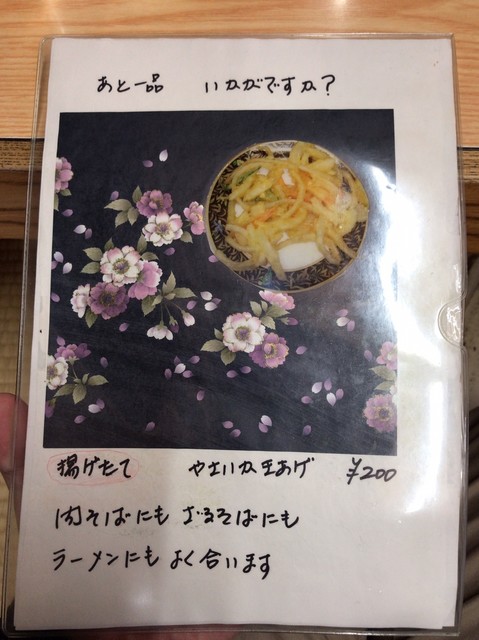 あと一品 いかがですか？
揚げたて やさいかき玉あげ ¥200
肉そばにも ざるそばにも
ラーメンにも よく合います